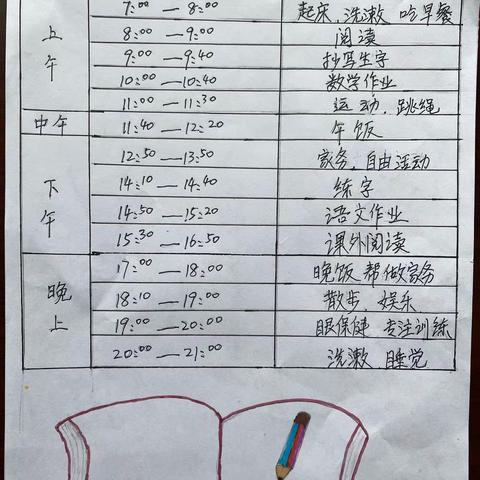 上午
7:00 — 8:00 起床、洗漱 吃早餐
8:00 — 9:00 阅读
9:00 — 9:40 抄写生字
10:00 — 10:40 数学作业
11:00 — 11:30 运动、跳绳
中午
11:40 — 12:20 午饭
下午
12:50 — 13:50 家务、自由活动
14:10 — 14:40 练字
14:50 — 15:20 语文作业
15:30 — 16:50 课外阅读
晚上
17:00 — 18:00 晚饭 帮做家务
18:10 — 19:00 散步、娱乐
19:00 — 20:00 眼保健 专注训练
20:00 — 21:00 洗漱 睡觉